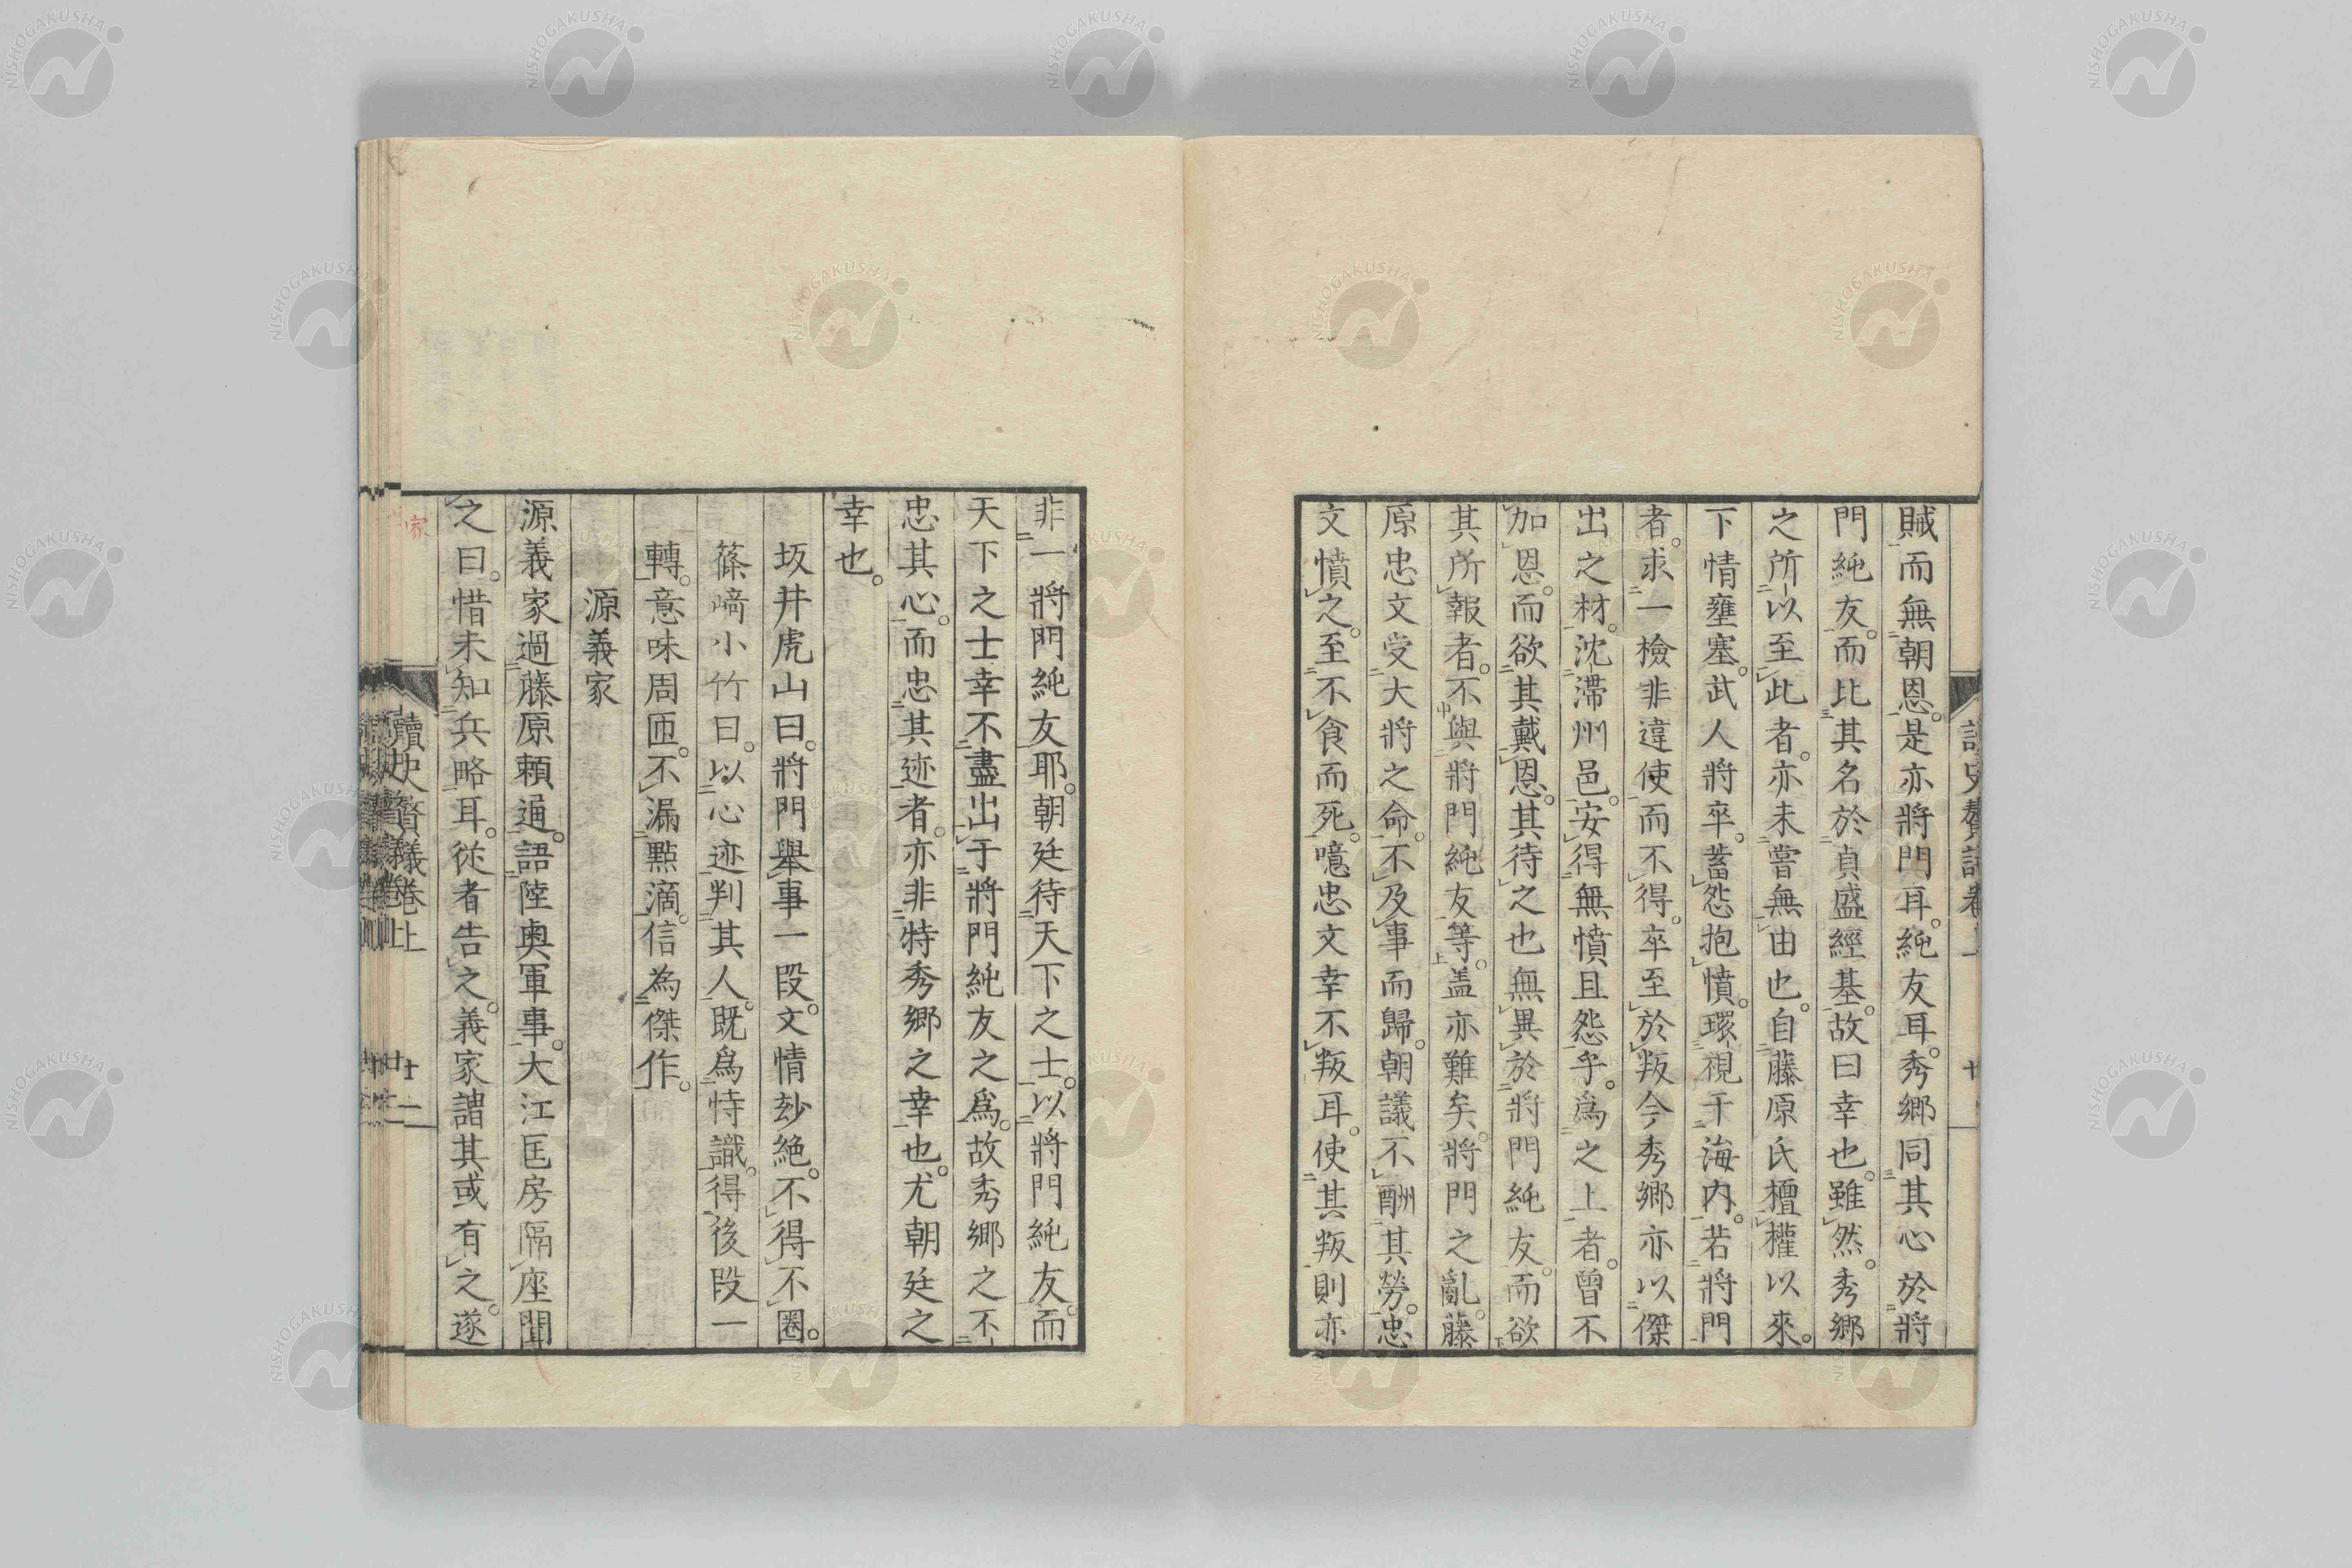 賊而無朝恩。是亦將門耳。純友耳。秀郷同其心於將
門純友。而比其名於貞盛經基。故曰幸也。雖然。秀郷
之所以至此者。亦未嘗無由也。自藤原氏擅權以來。
下情壅塞。武人將卒。蓄怨抱憤。環視于海內。若將門
者。求一檢非違使而不得。卒至於叛。今秀郷亦以傑
出之材。沈滯州邑。安得無憤且怨乎。爲之上者。曾不
加恩。而欲其戴恩。其待之也無異於將門純友。而欲
其所報者。不與將門純友等。盖亦難矣。將門之亂。藤
原忠文受大將之命。不及事而歸。朝議不酬其勞。忠
文憤之。至不食而死。噫忠文幸不叛耳。使其叛則亦
非一將門純友耶。朝廷待天下之士。以將門純友。而
天下之士幸不盡出于將門純友之爲。故秀郷之不
忠其心。而忠其迹者。亦非特秀郷之幸也。尤朝廷之
幸也。
坂井虎山曰。將門舉事一段。文情玅絶。不得不圏。
篠﨑小竹曰。以心迹判其人。既爲恃識。得後段一
轉。意味周匝。不漏點滴。信為傑作。
源義家
源義家過藤原賴通。語陸奥軍事。大江匡房隔座聞
之曰。惜未知兵略耳。從者告之。義家謂其或有之。遂
讀史贅議卷上
NISHOGAKUSHA